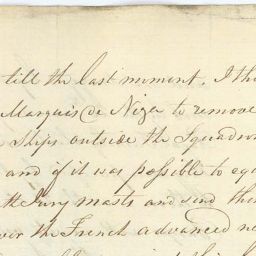 till the last moment, I th
Marquis de Niza to remove
Ships outside the Squadron
and if it was possible to eq
Jury masts and send the
the French advanced